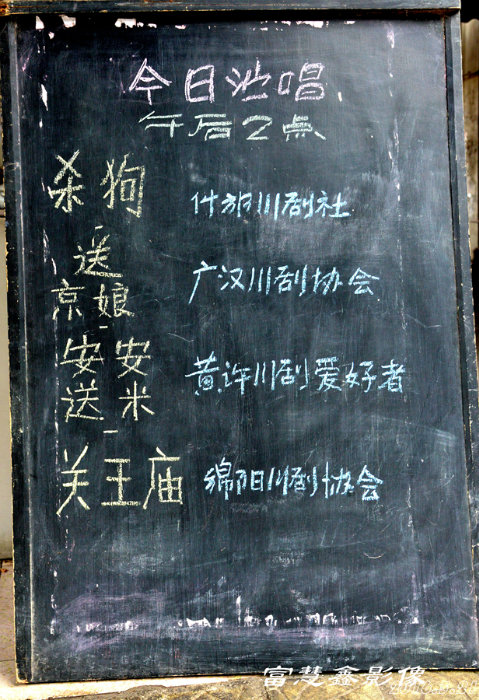 今日演唱
午后2点
杀狗 什邡川剧社
送
京娘 广汉川剧协会
安安
送米 黄许川剧爱好者
关王庙 绵阳川剧协会
富慧鑫影像